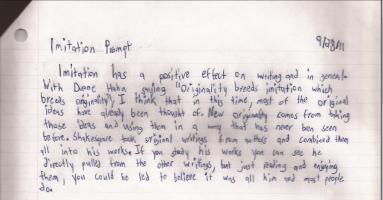 Imitation Prompt
9/23/11
Imitation has a positive effect on writing and in general.
With Diane Hahn saying "Originality breeds imitation which
breeds originality", I think that in this time, most of the original
ideas have already been thought of. New originality comes from taking
those ideas and using them in a way that has never ben seen
before. Shakespeare took original writings from authors and combined them
all into his works. If you study his works you can see he
directly pulled from the other writings, but just reading and enjoying
them, you could be led to believe it was all him and most people
do.